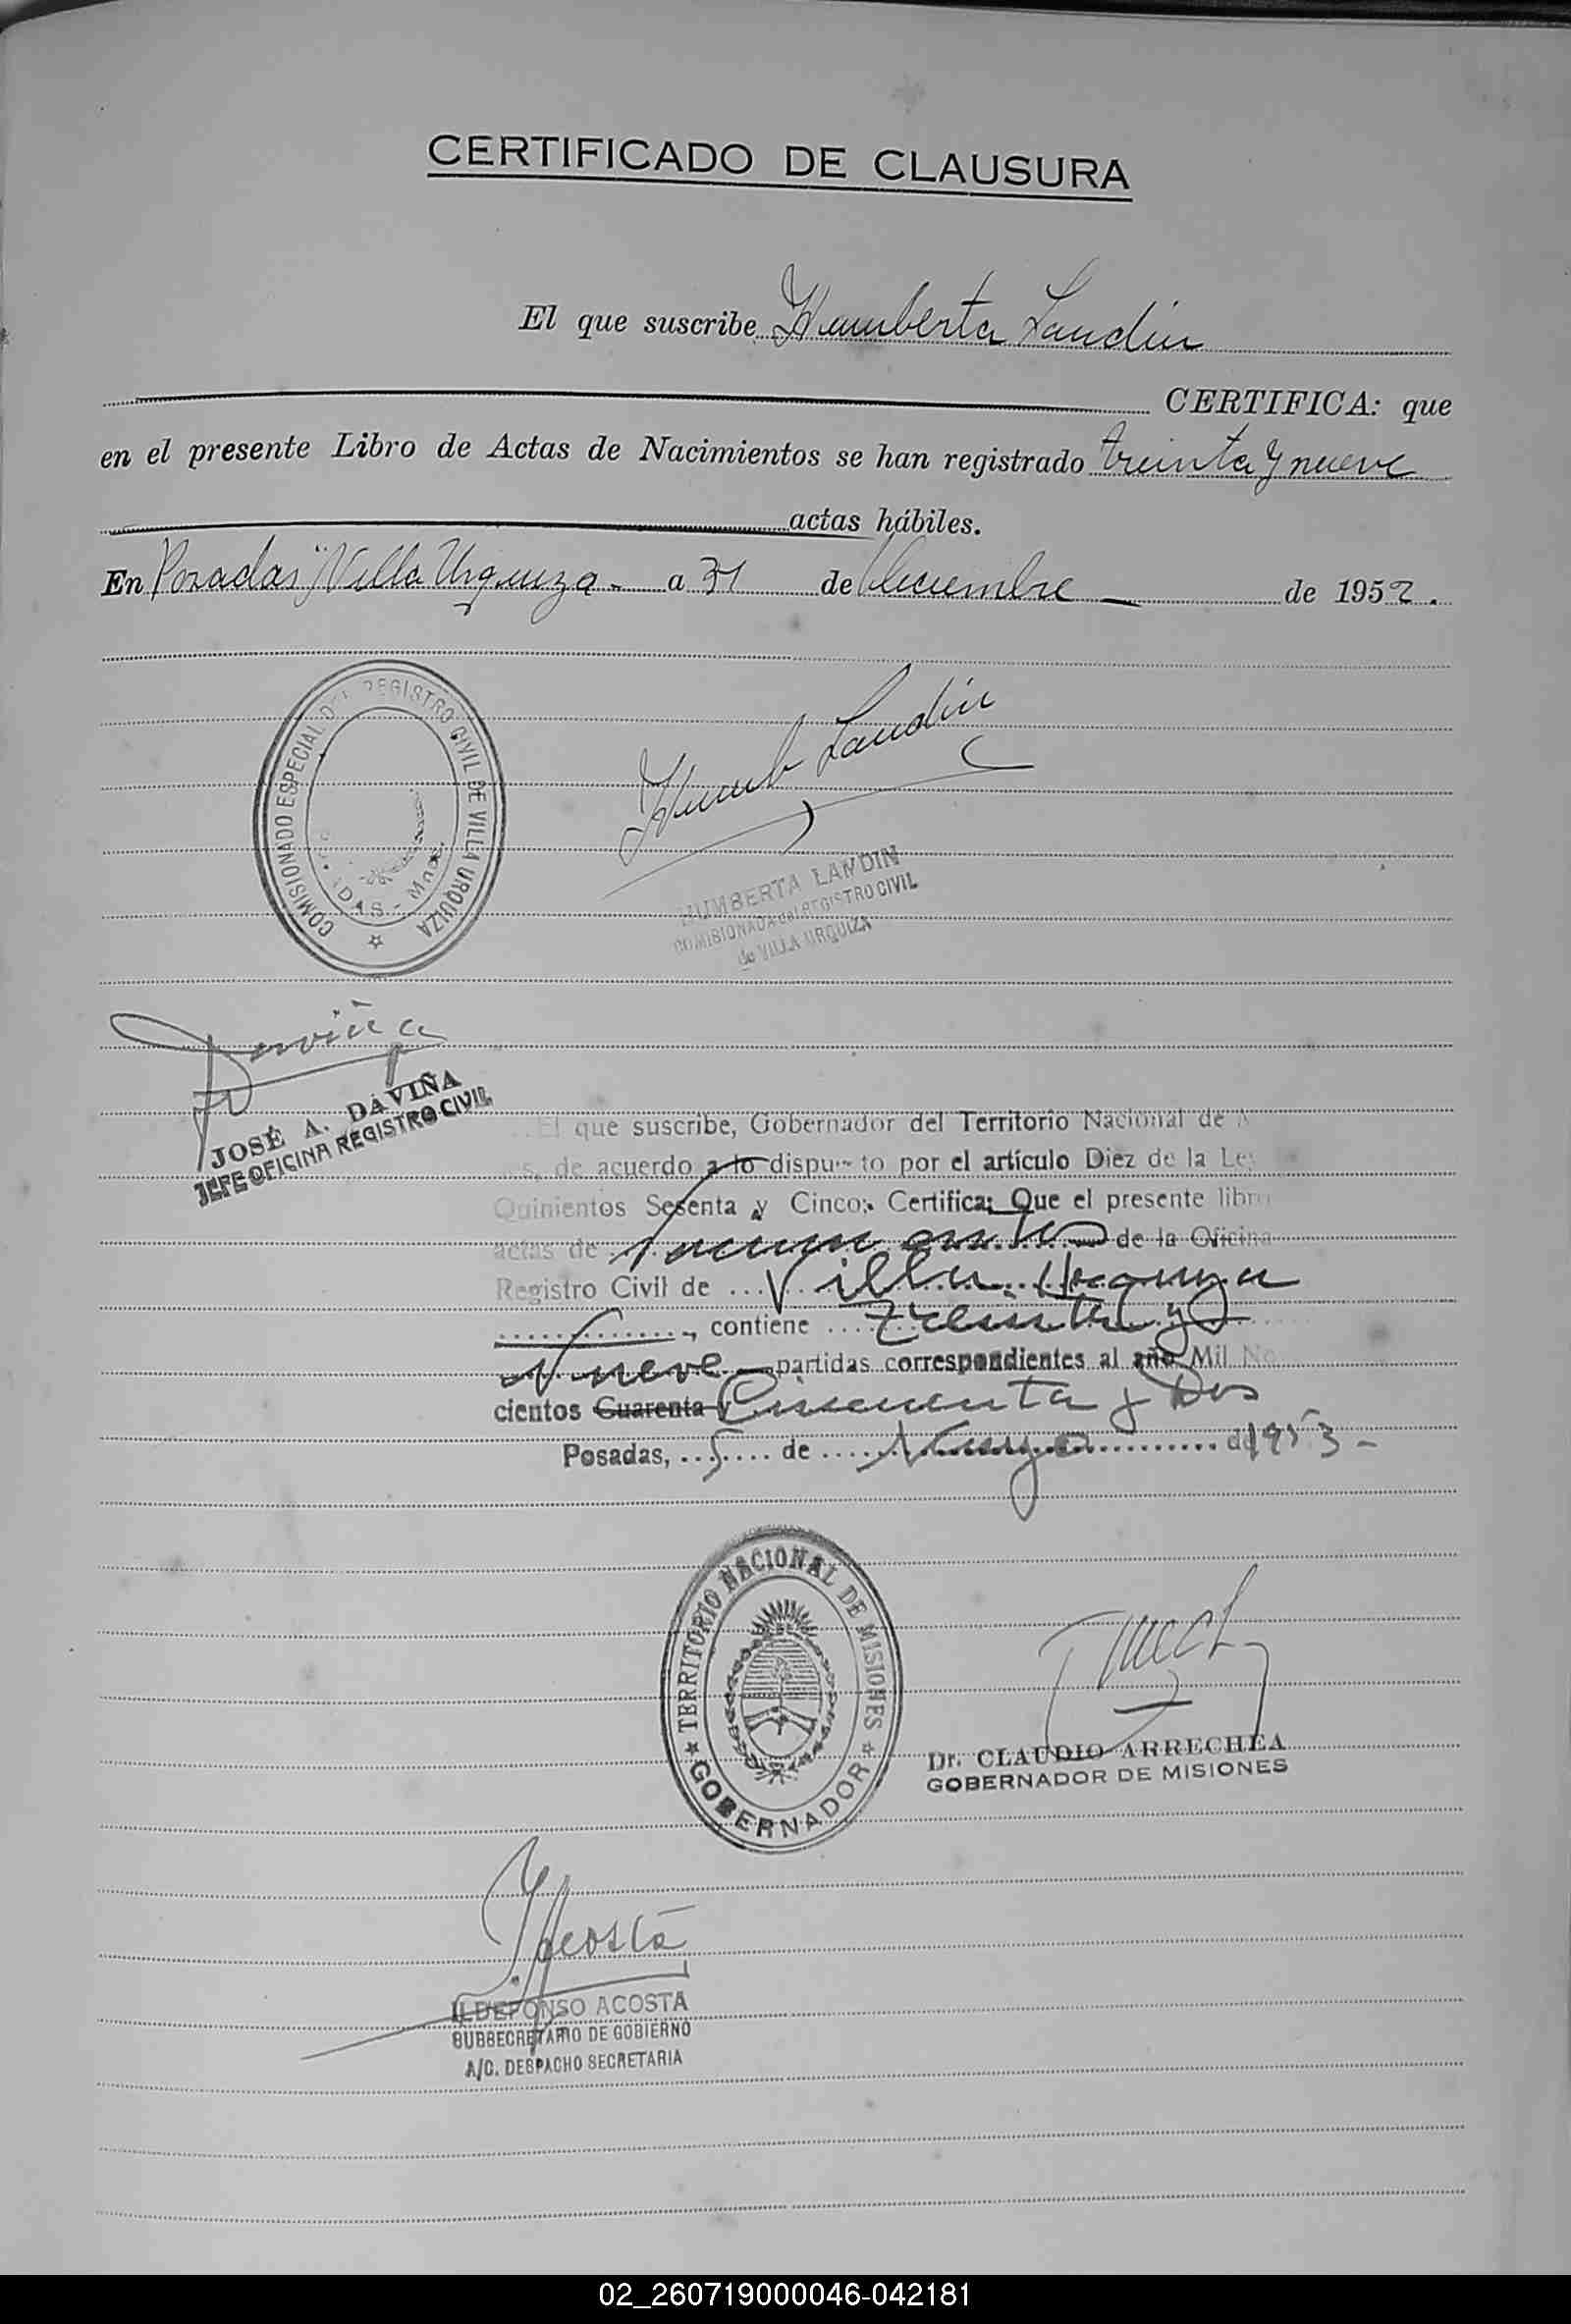 CERTIFICADO DE CLAUSURA
El que suscribe Humberta Landin
CERTIFICA: que
en el presente Libro de Actas de Nacimientos se han registrado treinta y nueve
actas hábiles.
En Posadas "Villa Urquiza - a 31 de Diciembre de 1952.
COMISIONADO ESPECIAL DEL REGISTRO CIVIL DE VILLA URQUIZA
Humb Landin
HUMBERTA LANDIN
COMISIONADA del REGISTRO CIVIL
de VILLA URQUIZA
Daviña
JOSÉ A. DAVIÑA
JEFE OFICINA REGISTRO CIVIL
El que suscribe, Gobernador del Territorio Nacional de
de acuerdo a lo dispuesto por el artículo Diez de la Ley
Quinientos Sesenta y Cinco; Certifica; Que el presente libro
actas de Nacimientos de la Oficina
Registro Civil de Villa Urquiza
contiene treinta y
Nueve partidas correspondientes al año Mil No
cientos Cuarenta y Cincuenta y Dos
Posadas, 5 de Mayo 1953 -
TERRITORIO NACIONAL DE MISIONES
GOBERNADOR
Dr. CLAUDIO ARRECHEA
GOBERNADOR DE MISIONES
Acosta
ILDEFONSO ACOSTA
SUBSECRETARIO DE GOBIERNO
A/C. DESPACHO SECRETARIA
02_260719000046-042181